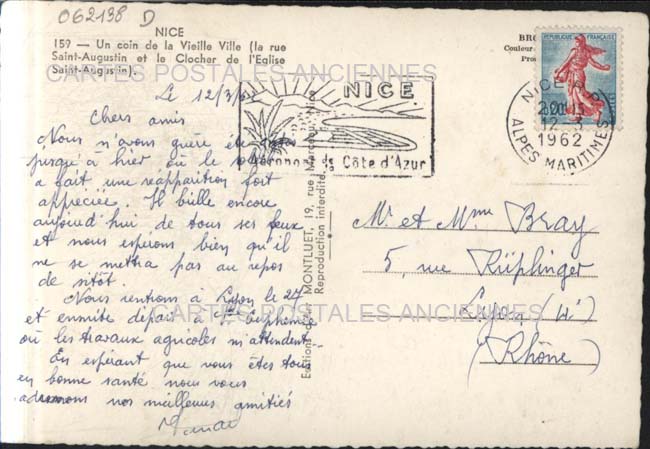 062138 D
NICE
159 — Un coin de la Vieille Ville (la rue
Saint-Augustin et le Clocher de l'Eglise
Saint-Augustin).
CARTES POSTALES ANCIENNES
Le 12/3/62
Chers amis
Nous n'avons guère été
jusqu'à hier où le soleil
a fait une réapparition fort
appréciée. Il brille encore
aujourd'hui de tous ses feux
et nous espérons bien qu'il
ne se mettra pas au repos
de sitôt.
Nous rentrons à Lyon le 27
et ensuite départ à St
où les travaux agricoles m'attendent.
En espérant que vous êtes tous
en bonne santé nous vous
adressons nos meilleures amitiés
Editions MONTLUET, 19, rue
Reproduction interdite
NICE
Aéroport de la Côte d'Azur
BRO
Couleur
Pro
REPUBLIQUE FRANÇAISE
NICE
12-3
1962
ALPES MARITIMES
Mr et Mme Bray
5, rue Rüplinger
Lyon (4e)
(Rhône)
CARTES POSTALES ANCIENNES